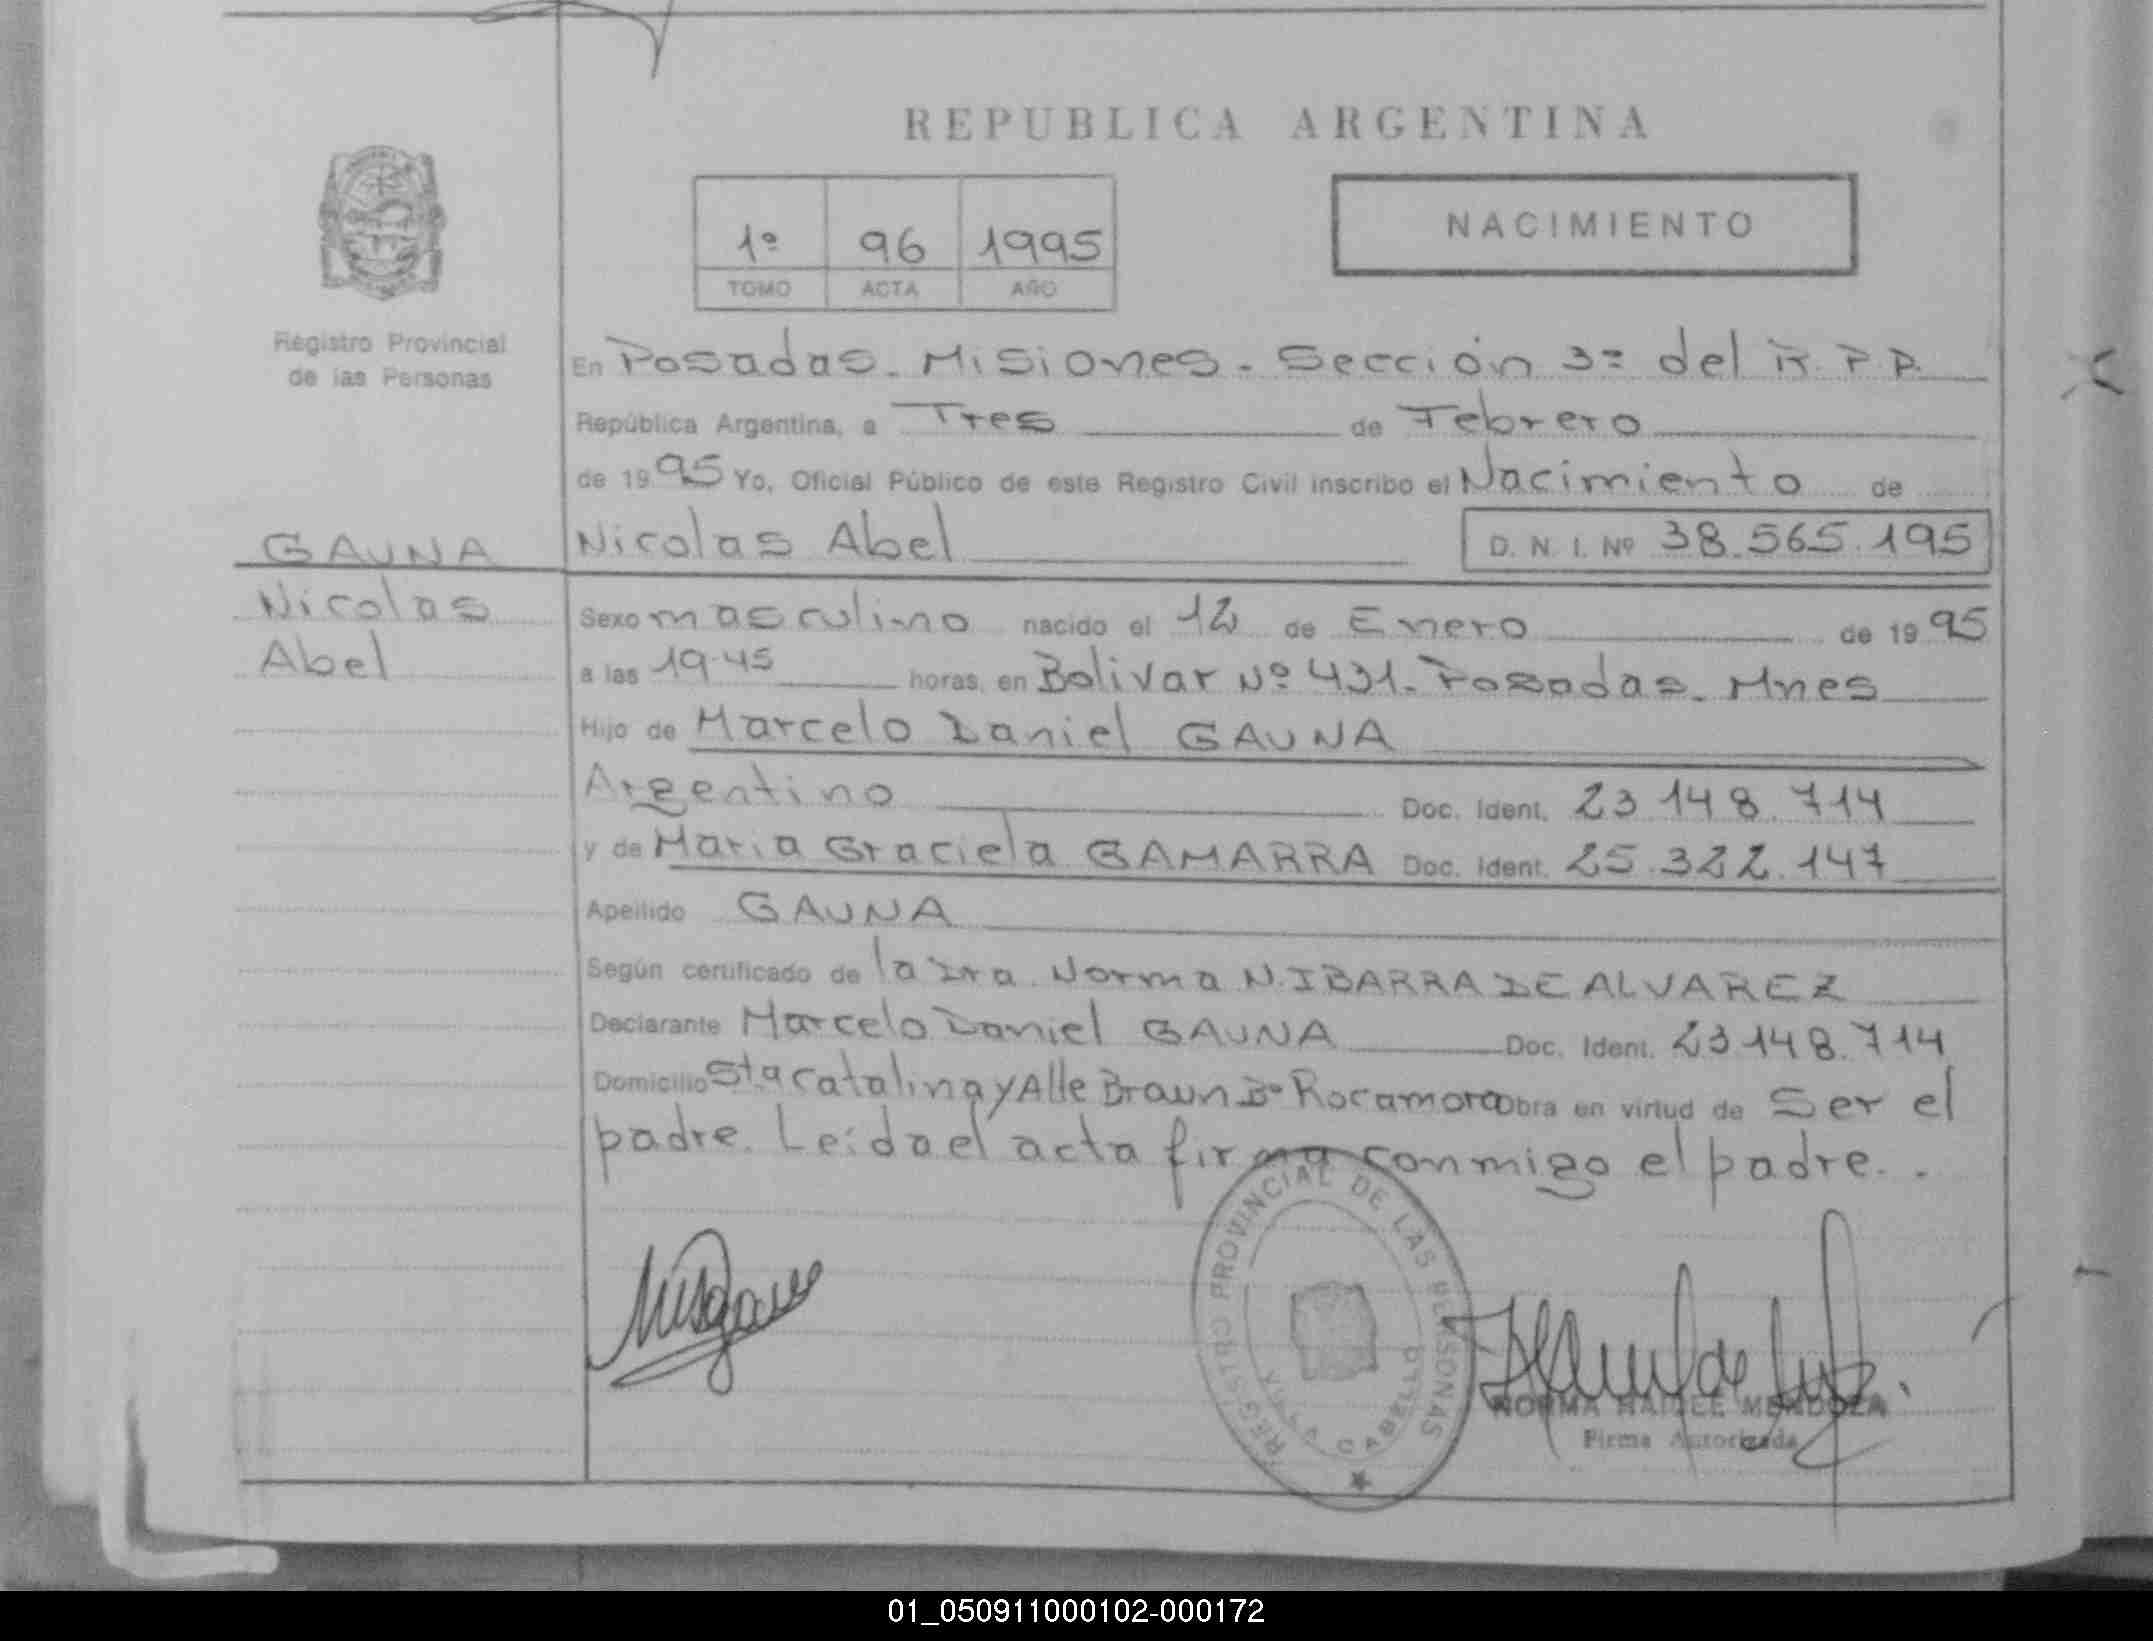 REPUBLICA ARGENTINA
NACIMIENTO
1º 96 1995
TOMO ACTA AÑO
Registro Provincial
de las Personas
En Posadas. Misiones. Sección 3ª del R. P. P.
República Argentina, a Tres de Febrero
de 1995 Yo, Oficial Público de este Registro Civil inscribo el Nacimiento de
GAUNA
Nicolas Abel D. N. I. Nº 38.565.195
Nicolas
Abel
Sexo masculino nacido el 12 de Enero de 1995
a las 19.45 horas, en Bolivar Nº 431. Posadas. Mnes
Hijo de Marcelo Daniel GAUNA
Argentino Doc. Ident. 23.148.714
y de Maria Graciela GAMARRA Doc. Ident. 25.322.147
Apellido GAUNA
Según certificado de la Dra. Norma N. IBARRA DE ALVAREZ
Declarante Marcelo Daniel GAUNA Doc. Ident. 23.148.714
Domicilio Sta Catalina y Alle Braun Bº Rocamora Obra en virtud de Ser el
padre. Leida el acta firma conmigo el padre..
REGISTRO PROVINCIAL DE LAS PERSONAS
VILLA CABELLO
NORMA HAIDEE MENDOZA
Firma Autorizada
01_050911000102-000172